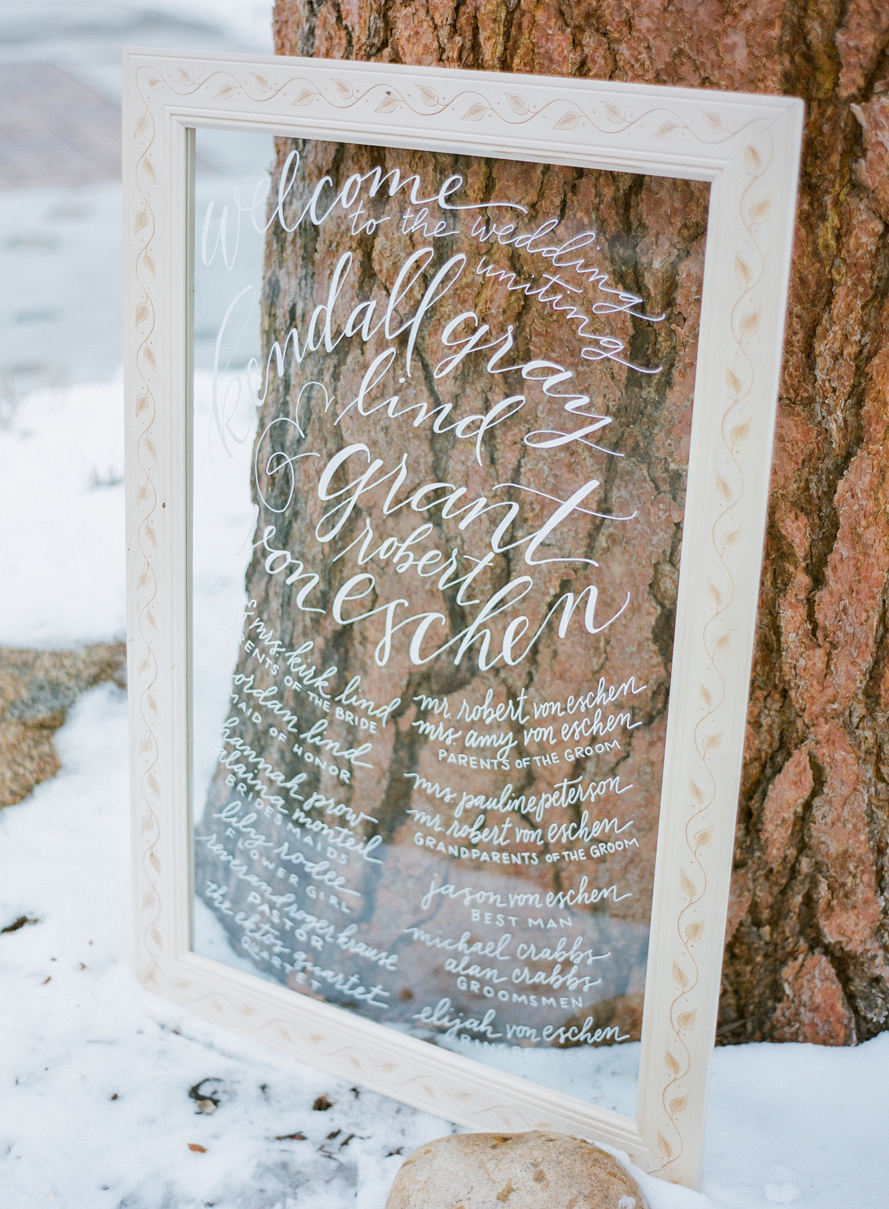 welcome
to the wedding
uniting
kendall gray
lind
&
grant
robert
von eschen
& mrs. kirk lind
PARENTS OF THE BRIDE
jordan lind
MAID OF HONOR
hannah prow
monteil
BRIDESMAIDS
lily rodee
FLOWER GIRL
roger krause
PASTOR
the quartet
mr. robert von eschen
mrs. amy von eschen
PARENTS OF THE GROOM
mrs. pauline peterson
mr. robert von eschen
GRANDPARENTS OF THE GROOM
jason von eschen
BEST MAN
michael crabbs
alan crabbs
GROOMSMEN
elijah von eschen